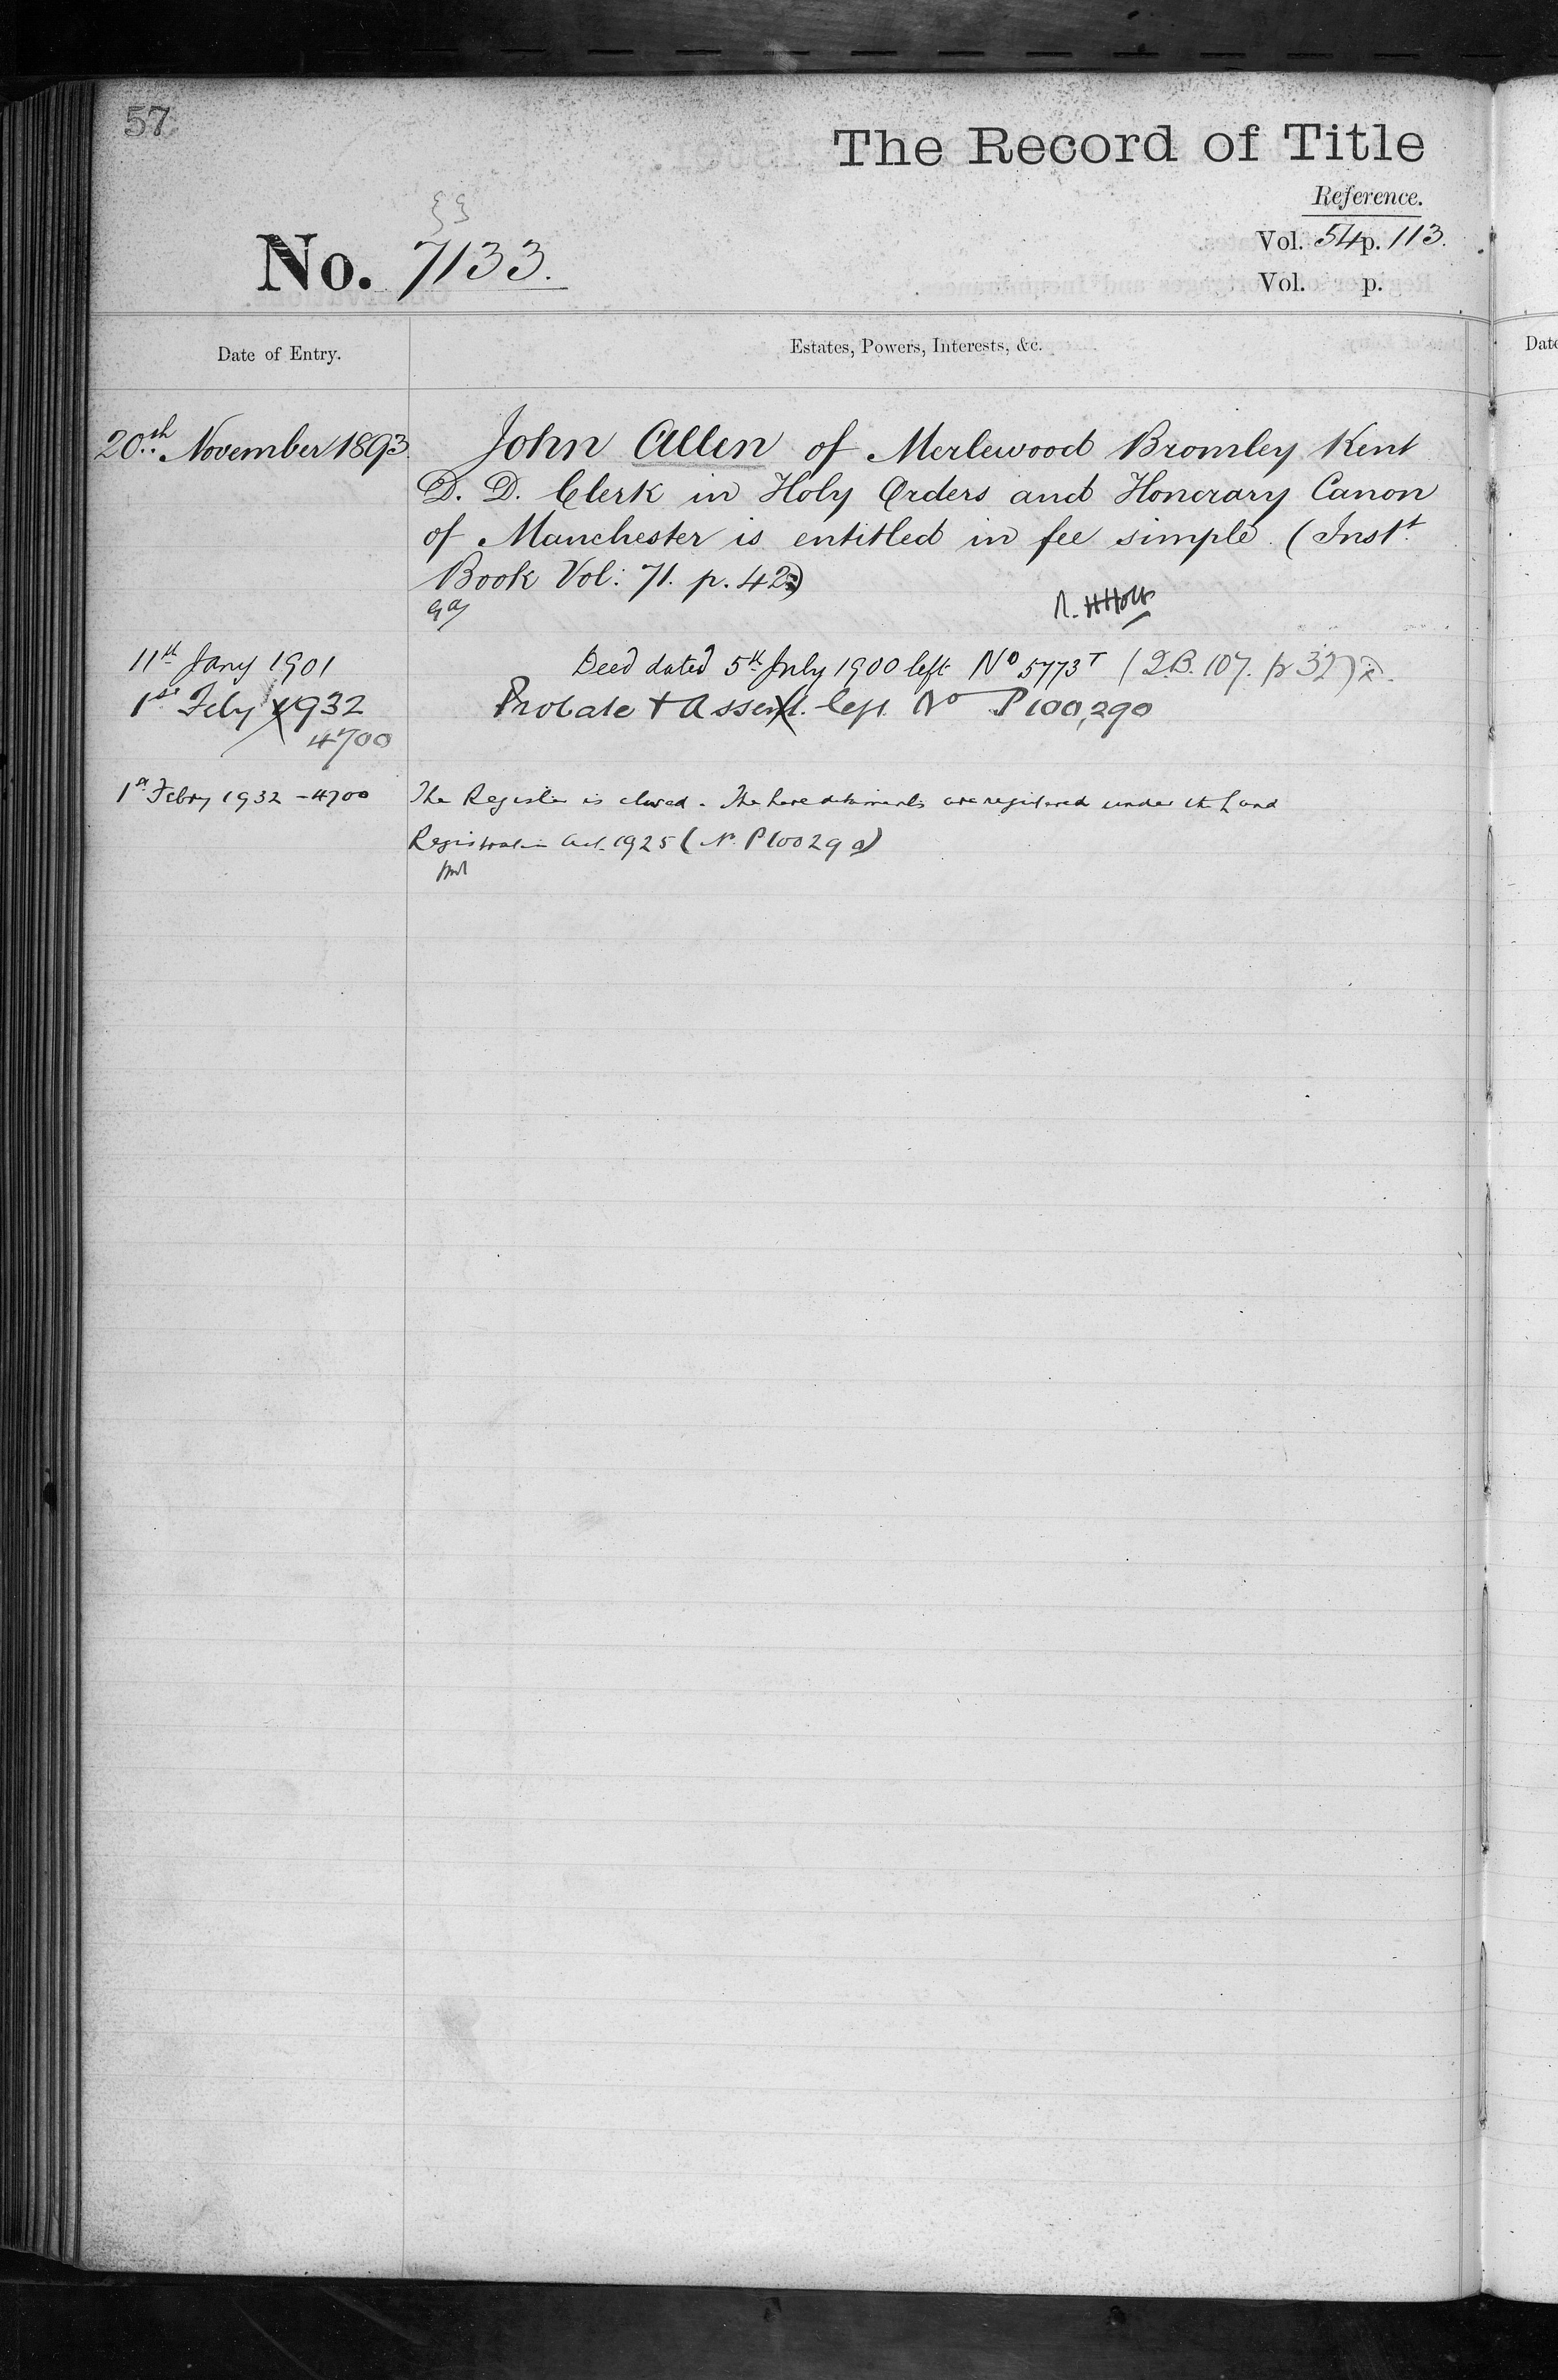 57
The Record of Title
Reference.
No. 7133.
Vol. 54 p. 113.
Vol. p.
Date of Entry.
Estates, Powers, Interests, &c.
Date
20th November 1893
John Allen of Merlewood Bromley Kent
D. D. Clerk in Holy Orders and Honorary Canon
of Manchester is entitled in fee simple (Instt
Book Vol: 71. p. 42)
R. H Holt
11th Jany 1901
Deed dated 5th July 1900 left No 5773T (D.B. 107. p 32)
1st Feby 1932
Probate + Assent left No P100,290
4700
1st Febry 1932 - 4700
The Register is closed. The hereditaments are registered under the Land
Registration Act. 1925 (No. P100290)